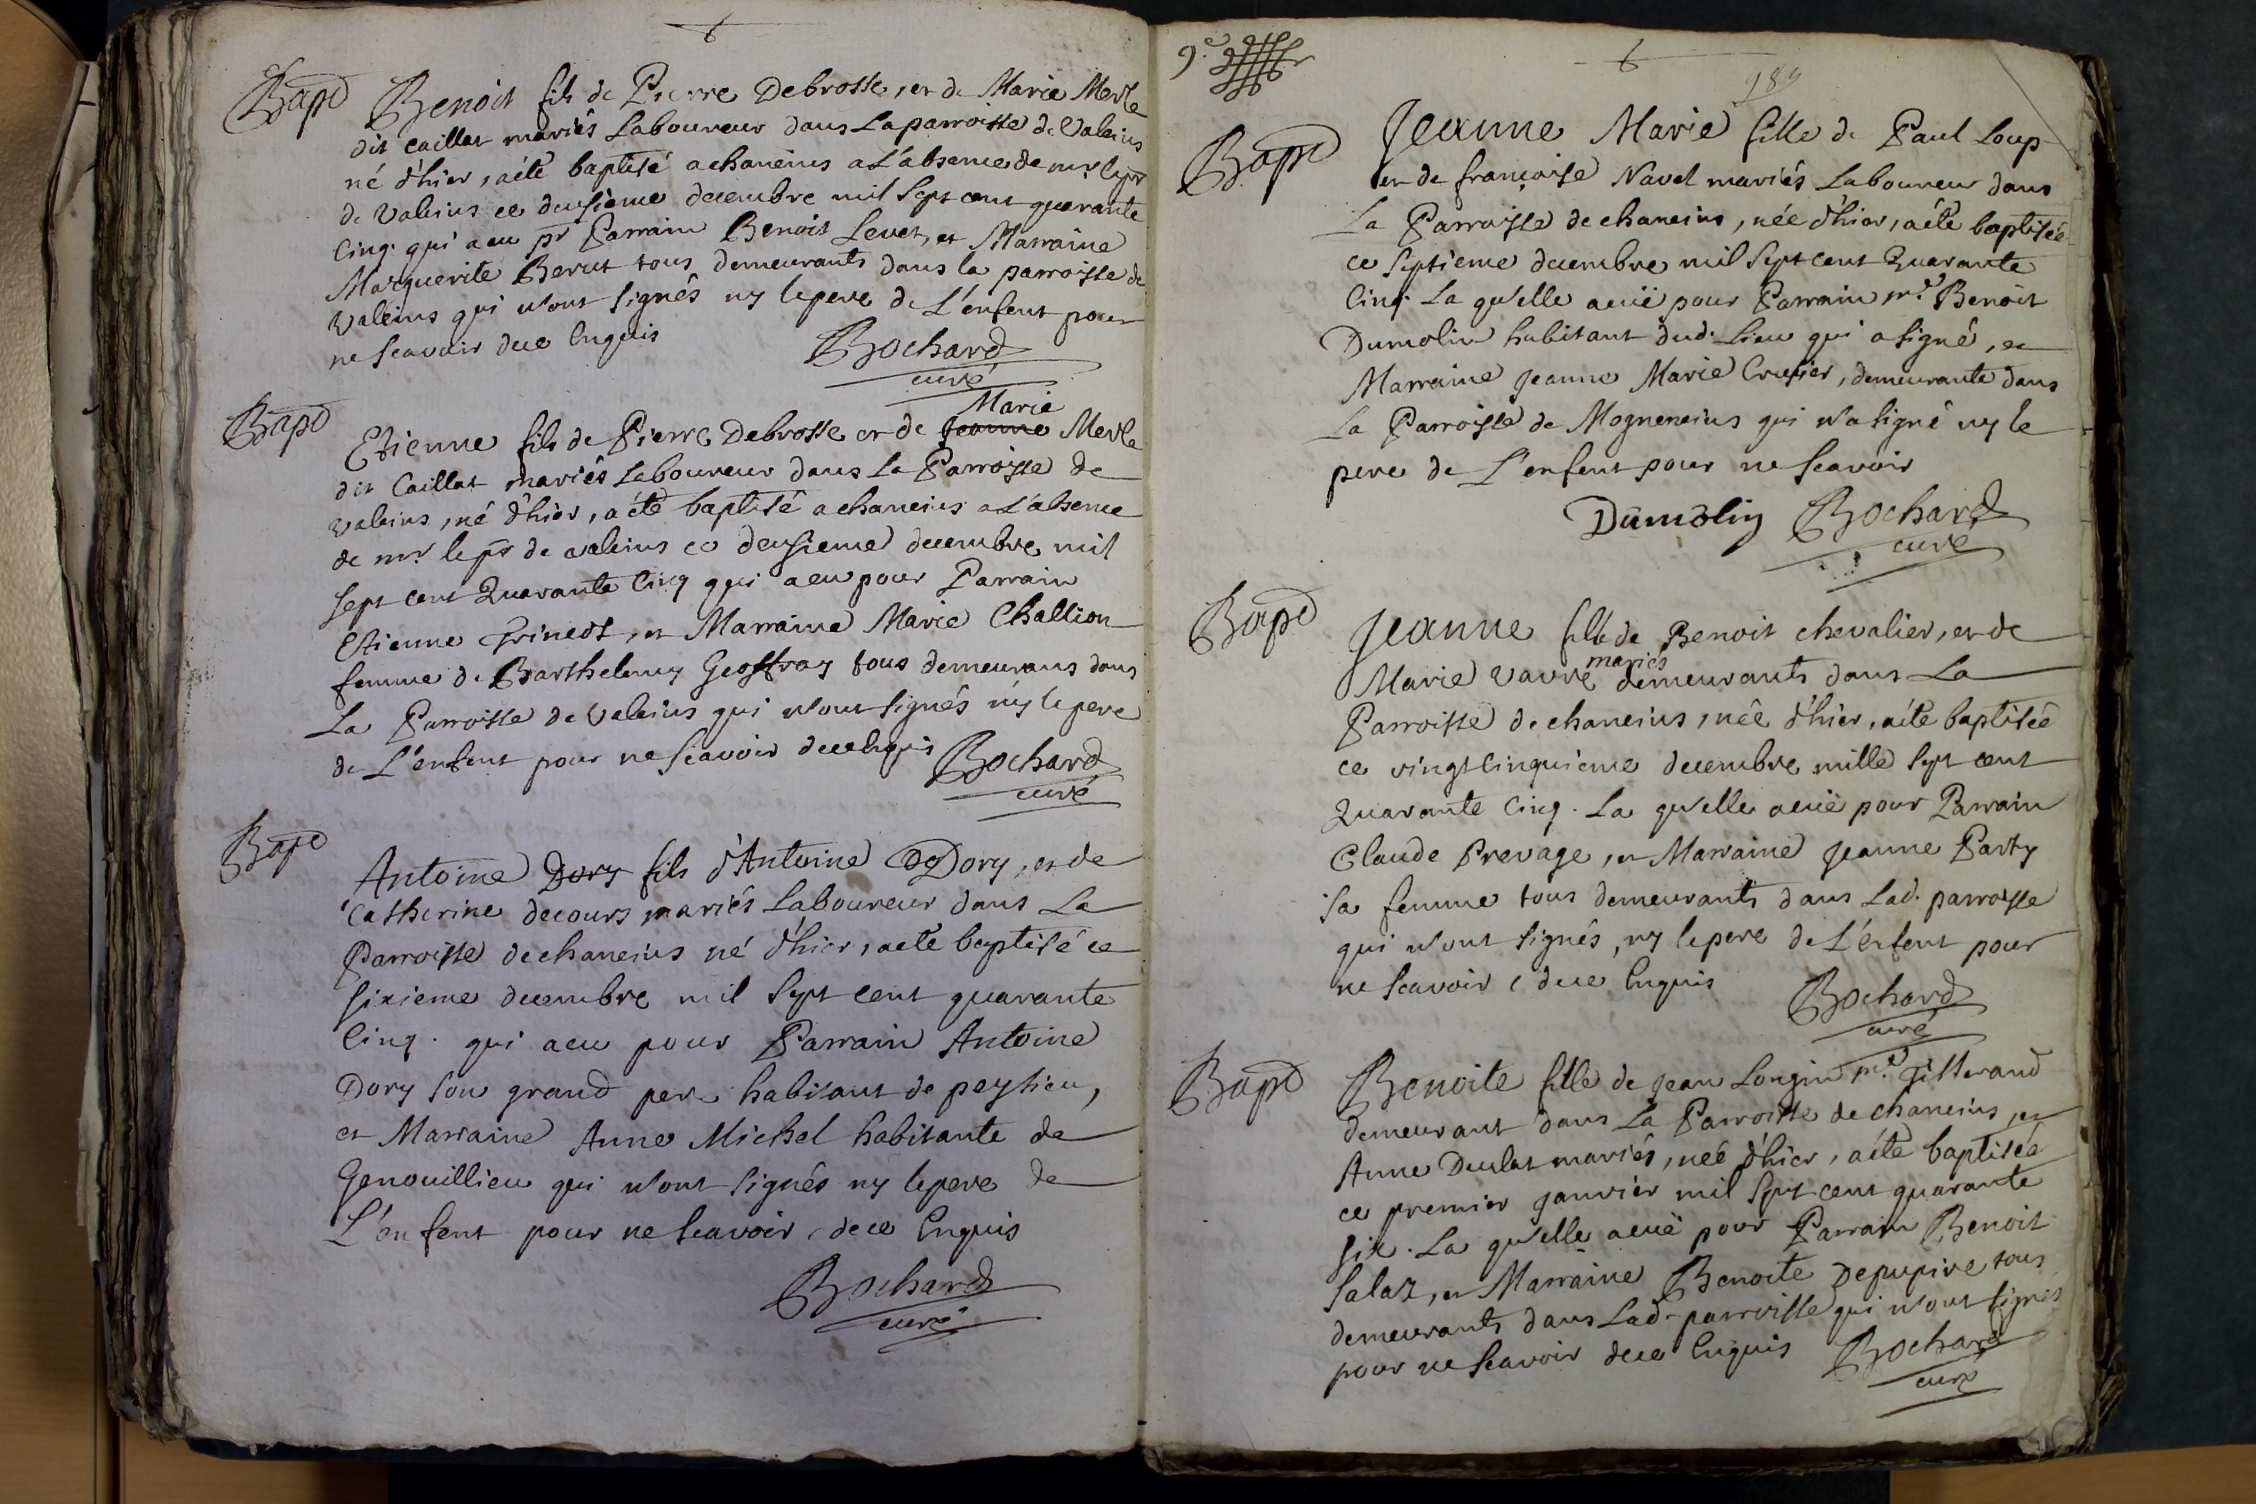 Bapt Benoit fils de Pierre Debrosse, et de Marie Merle
dit Caillat mariés Laboureur dans La parroisse de Valeins
né d'hier, aété baptisé a chaneins a L'absence de mr. le pr
de Valeins ce deusieme decembre mil sept cent quarante
Cinq. qui a eu pr Parrain Benoit Levet, et Marraine
Marguerite Berut tous demeurants dans la parroisse de
Valeins qui n'ont signés ny le pere de L'enfent pour
ne scavoir de ce Enquis
Bochard
curé
Bapt
Marie
Etienne fils de Pierre Debrosse et de Jeanne Merle
dit Caillat mariés Laboureur dans La Parroisse de
valeins, né d'hier, a été baptisé a chaneins a L'absence
de mr. le pr de valeins ce deusieme decembre mil
sept cent Quarante Cinq qui a eu pour Parrain
Etienne Trinedt, et Marraine Marie Challion
femme de Barthelemy Geoffray tous demeurans dans
La Parroisse de valeins qui n'ont signés ny le pere
de L'enfent pour ne scavoir de ce Enquis
Bochard
curé
Bapt
Antoine Dory fils d'Antoine Dory, et de
Catherine decours mariés Laboureur dans La
Parroisse de chaneins né d'hier, a eté baptisé ce
sixieme decembre mil sept cent quarante
Cinq. qui a eu pour Parrain Antoine
Dory son grand pere habitant de peysieu,
et Marraine Anne Michel habitante de
Genouillieu qui n'ont signés ny le pere de
L'enfent pour ne scavoir, de ce Enquis
Bochard
curé
9.e
189
Bapt
Jeanne Marie fille de Paul Loup
et de françoise Navel mariés Laboureur dans
La Parroisse de chaneins, née d'hier, a été baptisée
ce septieme decembre mil sept cent Quarante
Cinq. La qu'elle a euë pour Parrain mr. Benoit
Dumolin habitant dud. Lieu qui a signé, et
Marraine Jeanne Marie Crozier, demeurante dans
La Parroisse de Mogneneins qui n'a signé ny le
pere de L'enfent pour ne scavoir
Dumolin Bochard
curé
Bapt
Jeanne fille de Benoit chevalier, et de
mariés
Marie Vavre demeurants dans La
Parroisse de chaneins, née d'hier, a été baptisée
ce vingt cinquieme decembre mille sept cent
Quarante Cinq. La qu'elle a euë pour Parrain
Claude Prevage, et Marraine Jeanne Party
sa femme tous demeurants dans Lad. parroisse
qui n'ont signés, ny le pere de L'enfent pour
ne scavoir de ce Enquis
Bochard
curé
Bapt Benoite fille de Jean Longin me. Tisserand
demeurant dans La Parroisse de chaneins, et
Anne Deulat mariés, née d'hier, a été baptisée
ce premier Janvier mil sept cent quarante
six. La qu'elle a euë pour Parrain Benoit
Salaz, et Marraine Benoite Depupire tous
demeurants dans Lad. parroisse qui n'ont signés
pour ne scavoir de ce Enquis
Bochard
curé